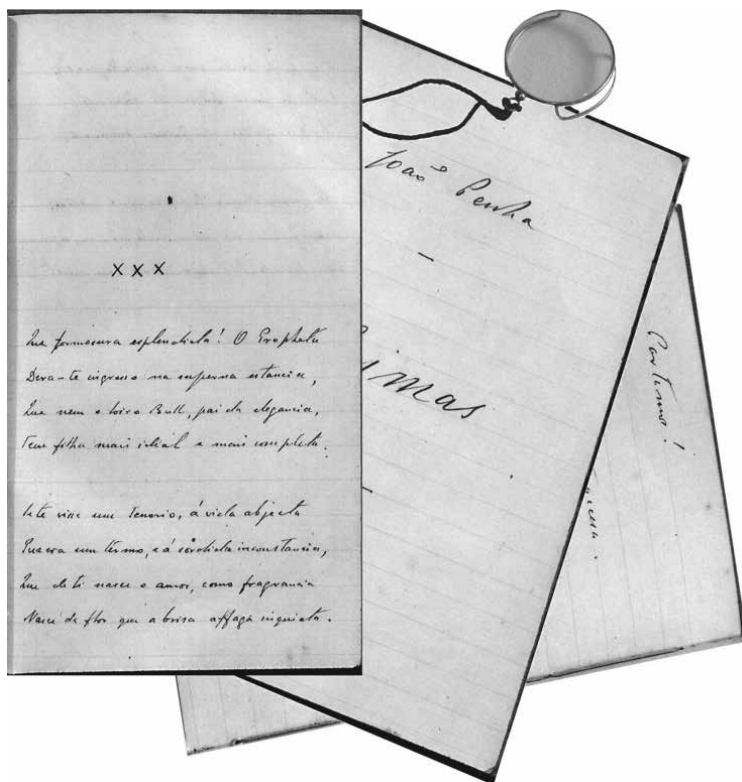 X X X
Que formosura esplendida! O Propheta
Dera-te ingresso na superna estancia,
Que nem o loiro Bull, pai da elegancia,
Tem filha mais idial e mais completa.
Se te visse um Tenorio, á vida abjecta
Puzera um termo, e á sordida inconstancia,
Que de ti nasce o amor, como fragrancia
Nasce da flor que a brisa affaga inquieta.
João Penha
—
imas
—
Partimos!